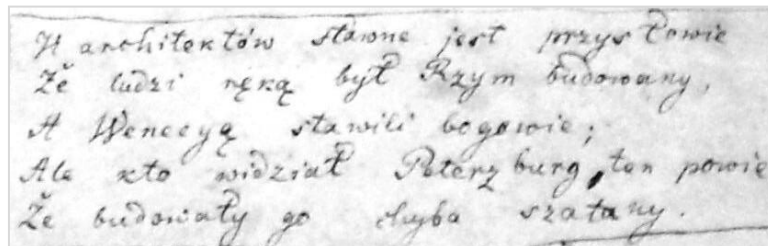 U architektów sławne jest przysłowie
Że ludzi ręką był Rzym budowany,
A Wenecyą stawili bogowie;
Ale kto widział Peterzburg, ten powie
Że budowały go chyba szatany.